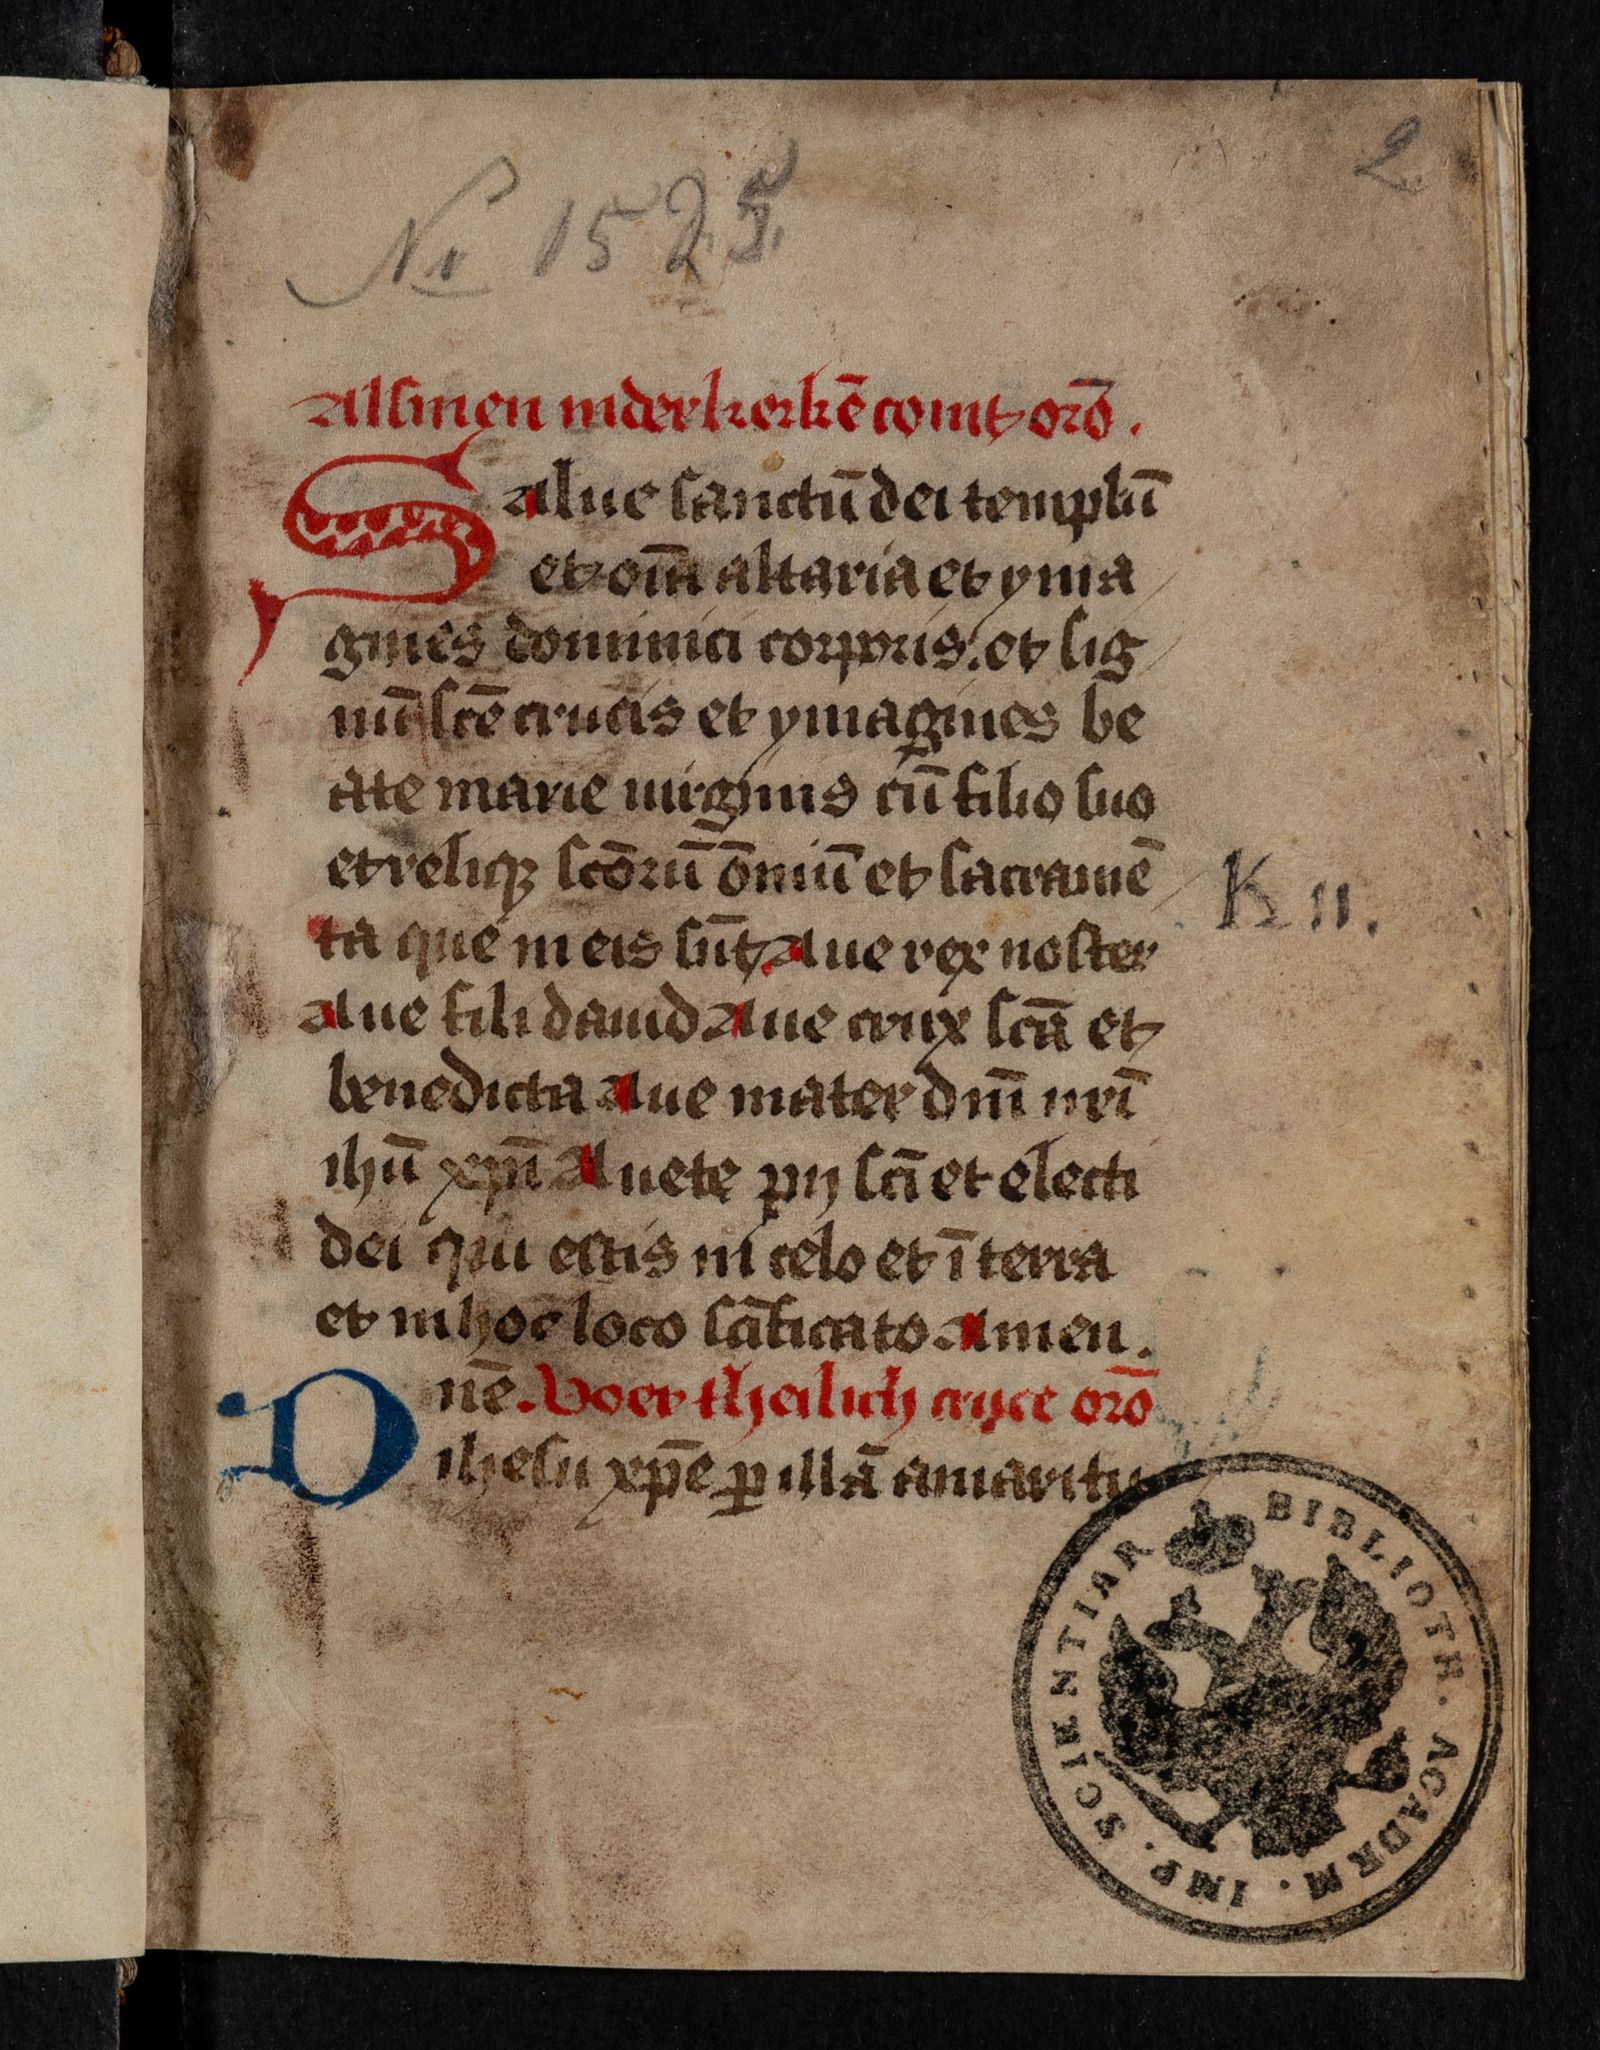 2
Nr 1525.
Alsmen inder kerkē comt orō.
Salue sanctū dei templū
et oīa altaria et yma
gines dominici corporis. et lig
nū scē crucis et ymagines be
ate marie uirginis cū filio suo
et reliqȝ scōrū ōmiū et sacramē
ta que in eis sūt Aue rex noster
Aue fili dauid Aue crux scā et
benedicta Aue mater dnī nrī
ihū xpī Auete pij scī et electi
dei qui estis in celo et ī terra
et in hoc loco scīficato Amen.
nē. Voer theilich cruce orō
O ihesu xpē ꝑ illā amaritu
K II.
BIBLIOTH. ACADEM. IMP. SCIENTIAR